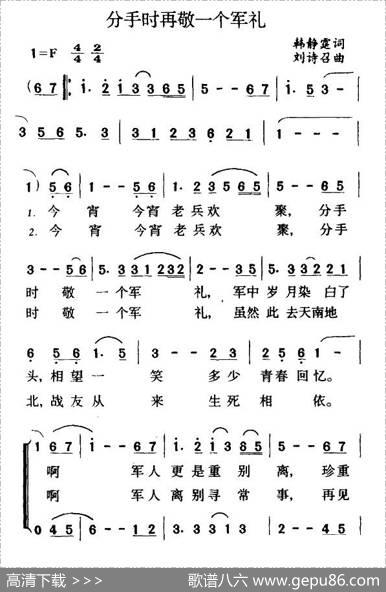 分手时再敬一个军礼
1=F 4/4 2/4
韩静霆词
刘诗召曲
(6 7 ‖: 1. 2 1 3 3 6 5 | 5 - - 6 7 | 1. 5 3 - |
3 5 6 5. 3 | 3 1 2 3 6 2 1 | 1 - - - |
1) 5 6 | 1 - - 5 6 | 1. 2 3 5 6 5 | 5 - - 5 6 |
1. 今宵 今宵 老兵欢 聚， 分手
2. 今宵 今宵 老兵欢 聚， 分手
3 - - 5 6 | 5. 3 3 1 2 3 2 | 1 - - 5 | 3. 5 3 2 2 1
时 敬 一个军 礼， 军中 岁 月染 白了
时 敬 一个军 礼， 虽然 此 去天南地
6 5 6 1. 5 | 3 - - 2 3 | 2 5 6 1 | 1 - - -
头，相望一 笑 多少 青春 回忆。
北，战友从 来 生死 相 依。
1 6 7 | 1 - - 6 7 | 1. 2 1 3 8 5 | 5 - - 6 7
啊 军人 更是重 别 离， 珍重
啊 军人 离别寻 常 事， 再见
0 4 5 | 6 - - 1 2 | 3. 3 3 1 | 2 - - 4 5
高清下载 >>>
歌谱八六 www.gepu86.com